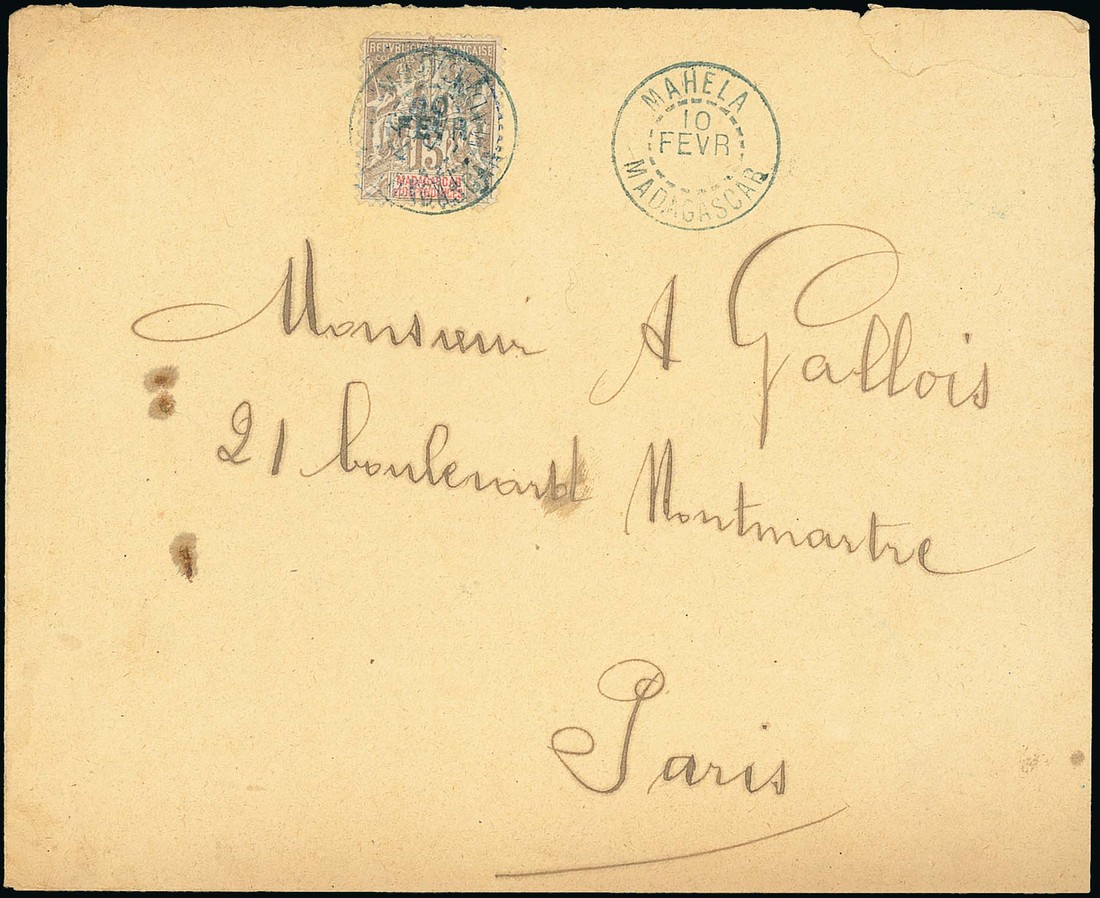 REPVBLIQUE FRANÇAISE
15
MADAGASCAR
ET DÉPENDANCES
MAHELA
10
FEVR
MADAGASCAR
Monsieur A Gallois
21 boulevard Montmartre
Paris